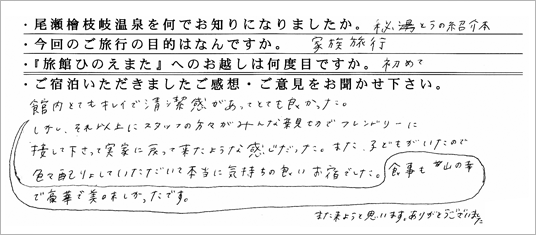 ・尾瀬檜枝岐温泉を何でお知りになりましたか。 秘湯とうの紹介本
・今回のご旅行の目的はなんですか。 家族旅行
・『旅館ひのえまた』へのお越しは何度目ですか。 初めて
・ご宿泊いただきましたご感想・ご意見をお聞かせ下さい。
館内とてもキレイで清潔感があってとても良かった。
しかし、それ以上にスタッフの方々がみんな親切でフレンドリーに
接して下さって実家に戻って来たような感じだった。また、子どもがいたので
色々配りょしていただいて本当に気持ちの良いお宿でした。食事も 山の幸
で豪華で美味しかったです。
また来ようと思います。ありがとうございました